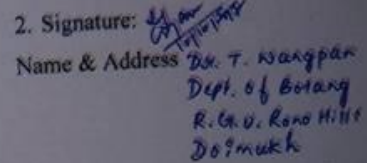 2. Signature:
Name & Address Dr. T. Wangpan
Dept. of Botany
R.G.U. Rono Hills
Doimukh